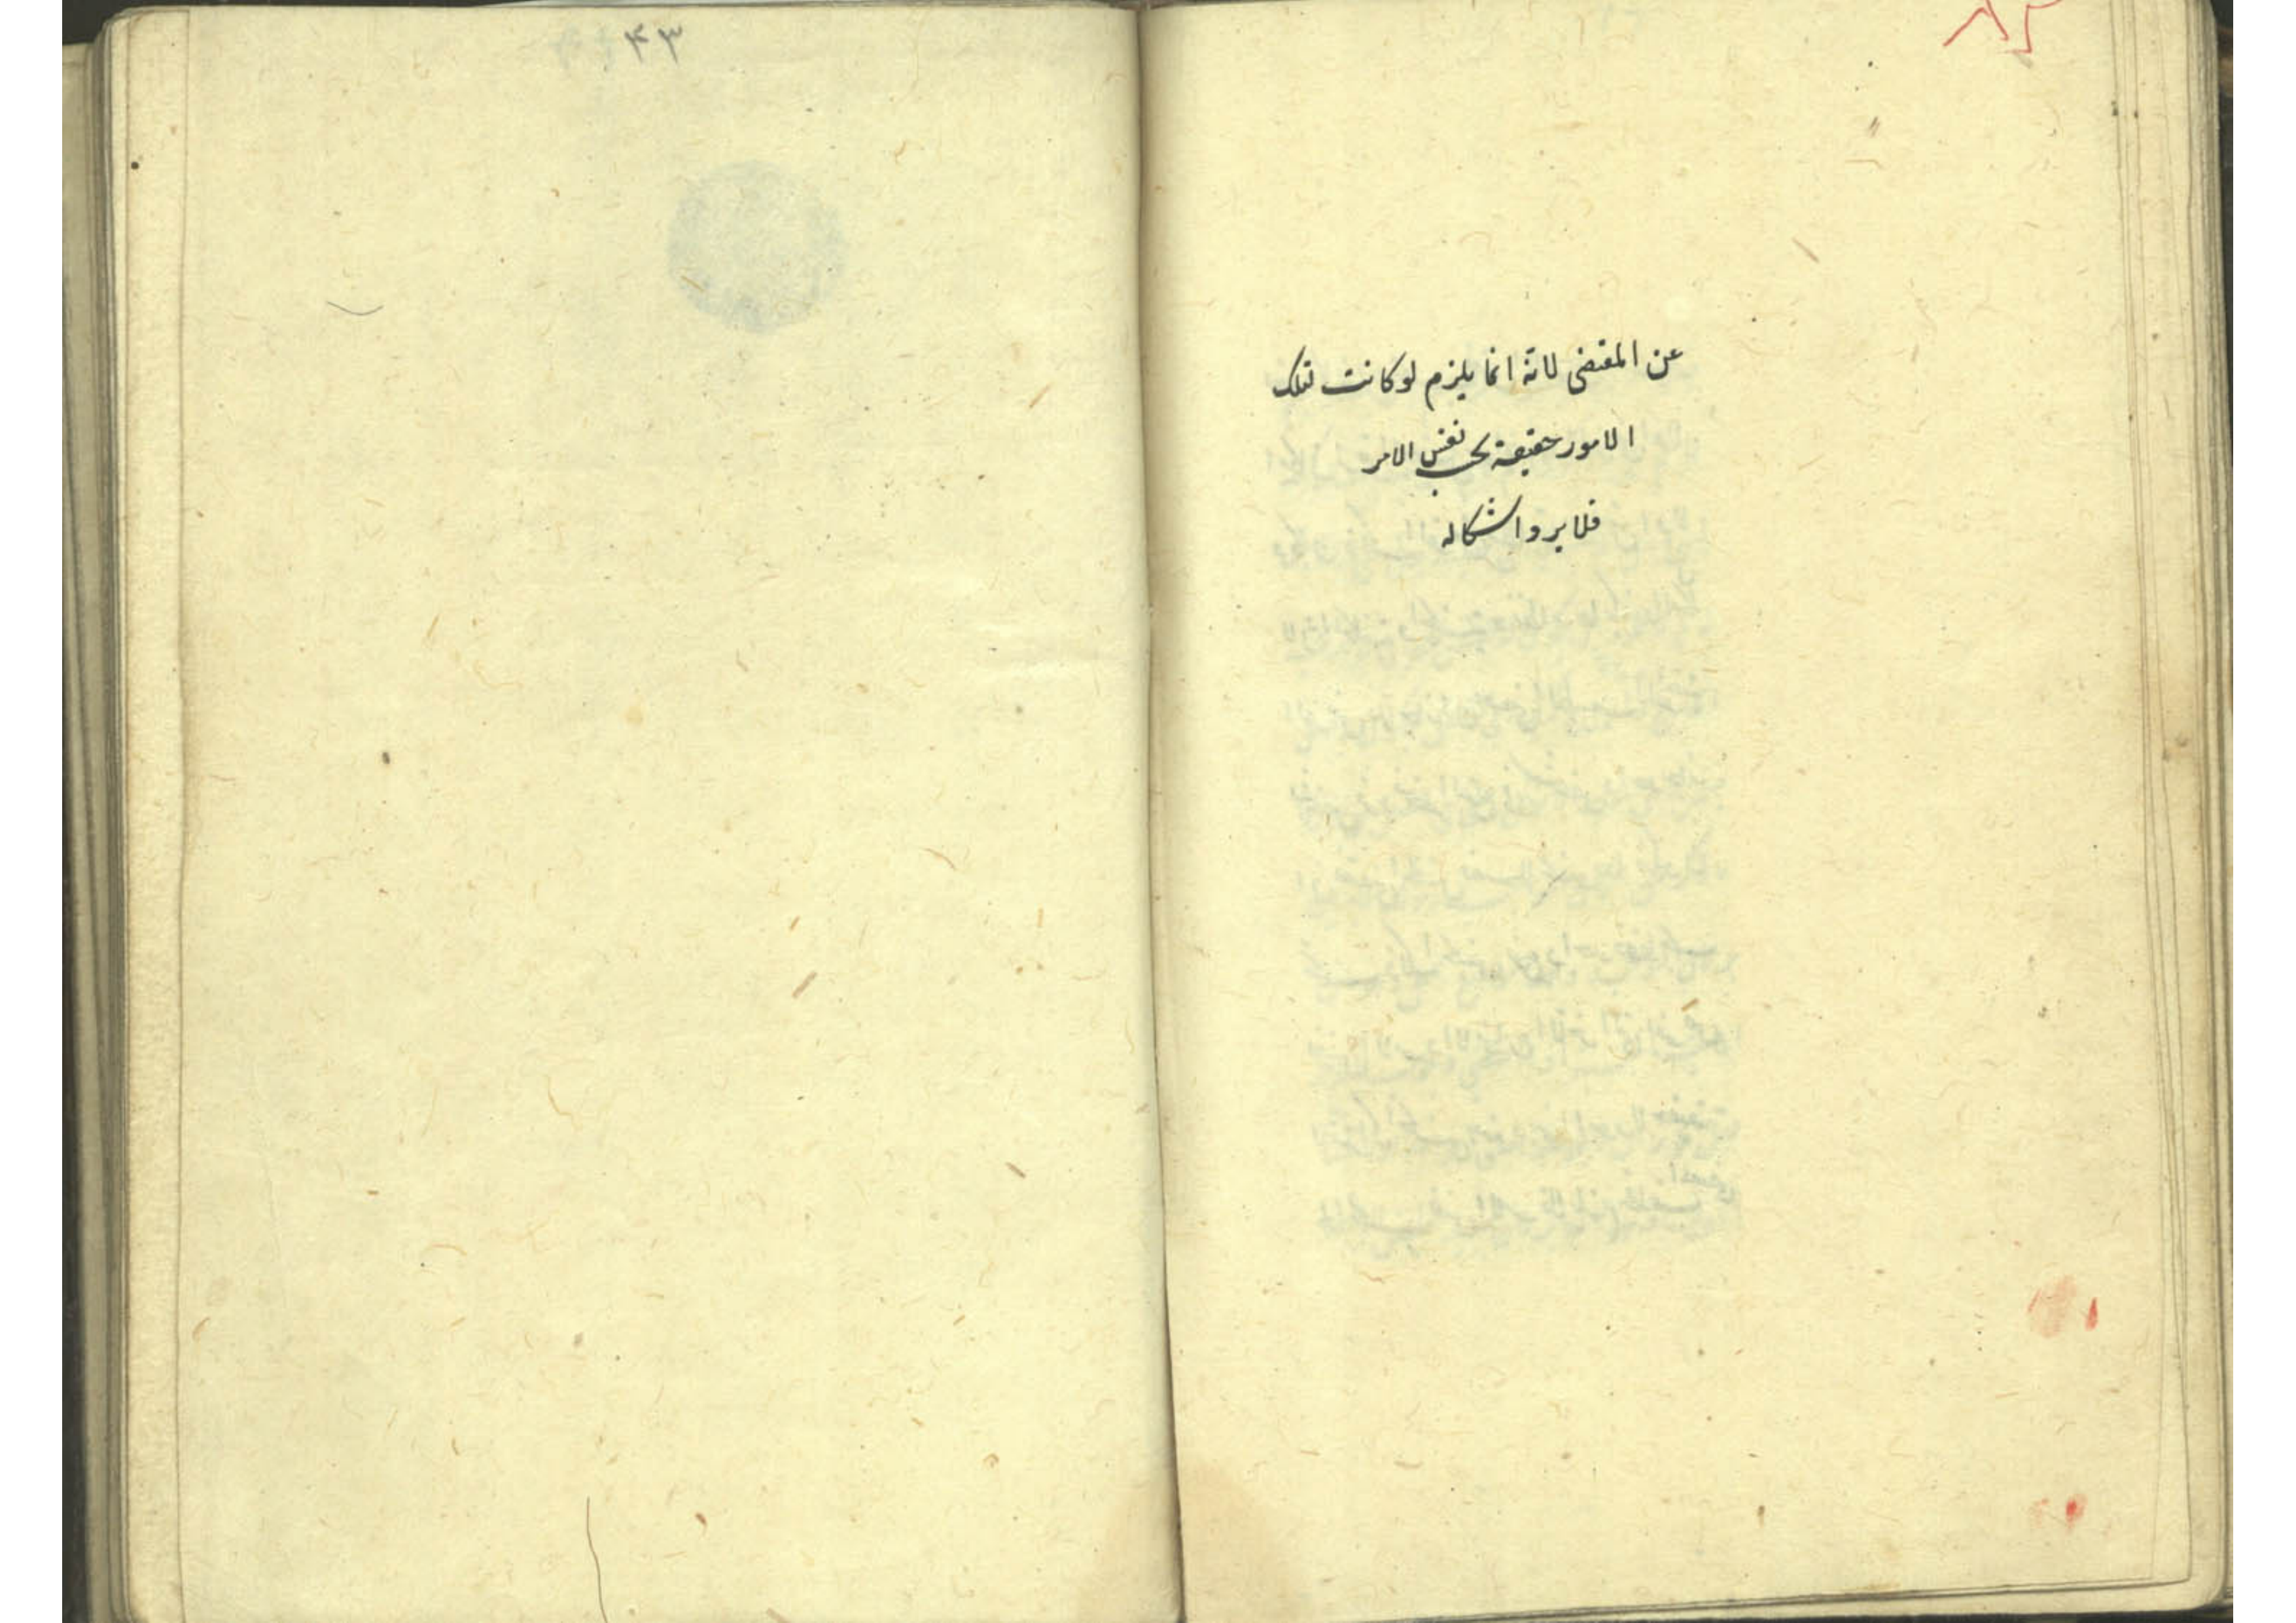 عن المقتضى لانه انما يلزم لو كانت تلك
الامور حقيقة بحسب نفس الامر
فلا يرد اشكاله
۴۳